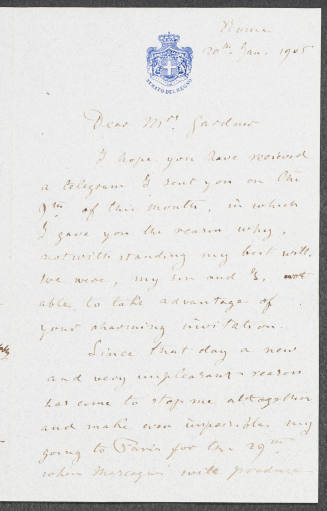 Roma
20th Jan. 1905
SENATO DEL REGNO
Dear Mrs. Gardner
I hope you have received
a telegram I sent you on the
9th of this month, in which
I gave you the reason why,
notwithstanding my best will,
we were, my son and I, not
able to take advantage of
your charming invitation.
Since that day a new
and very unpleasant reason
has come to stop me altogether
and make even impossible my
going to Paris for the 29th
when Mascagni will produce